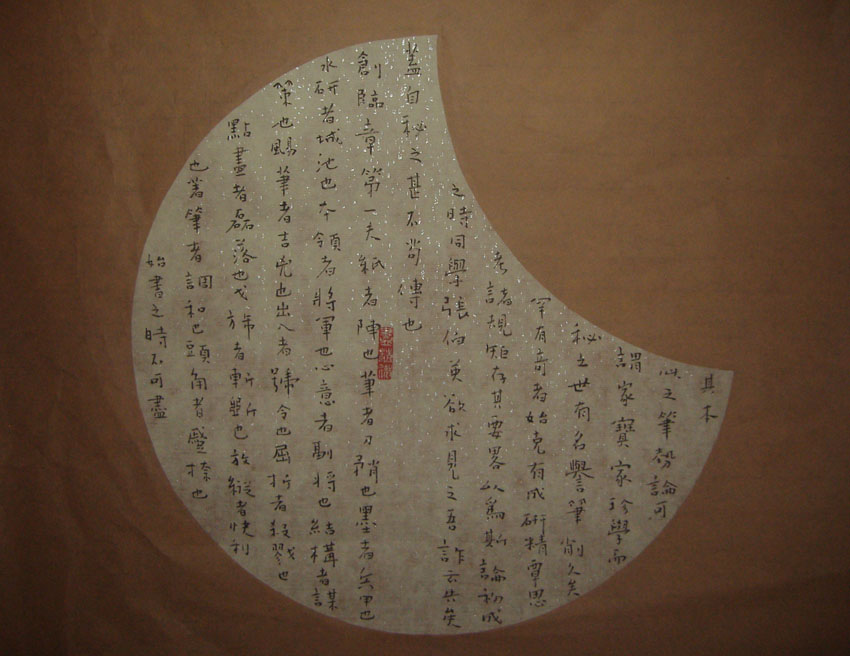 其本
此之筆勢論可
謂家寶家珍學而
秘之世有名譽筆削久矣
罕有奇者始克有成研精覃思
考諸規矩存其要畧以爲斯論初成
之時同學張伯英欲求見之吾詐云失矣
蓋自秘之甚不苟傳也
創臨章第一夫紙者陣也筆者刀矟也墨者兵甲也
水研者城池也本領者將軍也心意者副將也結構者謀
策也颺筆者吉兇也出入者號令也屈折者殺戮也
點畫者磊落也戈旆者斬斫也放縱者快利
也著筆者調和也頭角者蹙捺也
始書之時不可盡